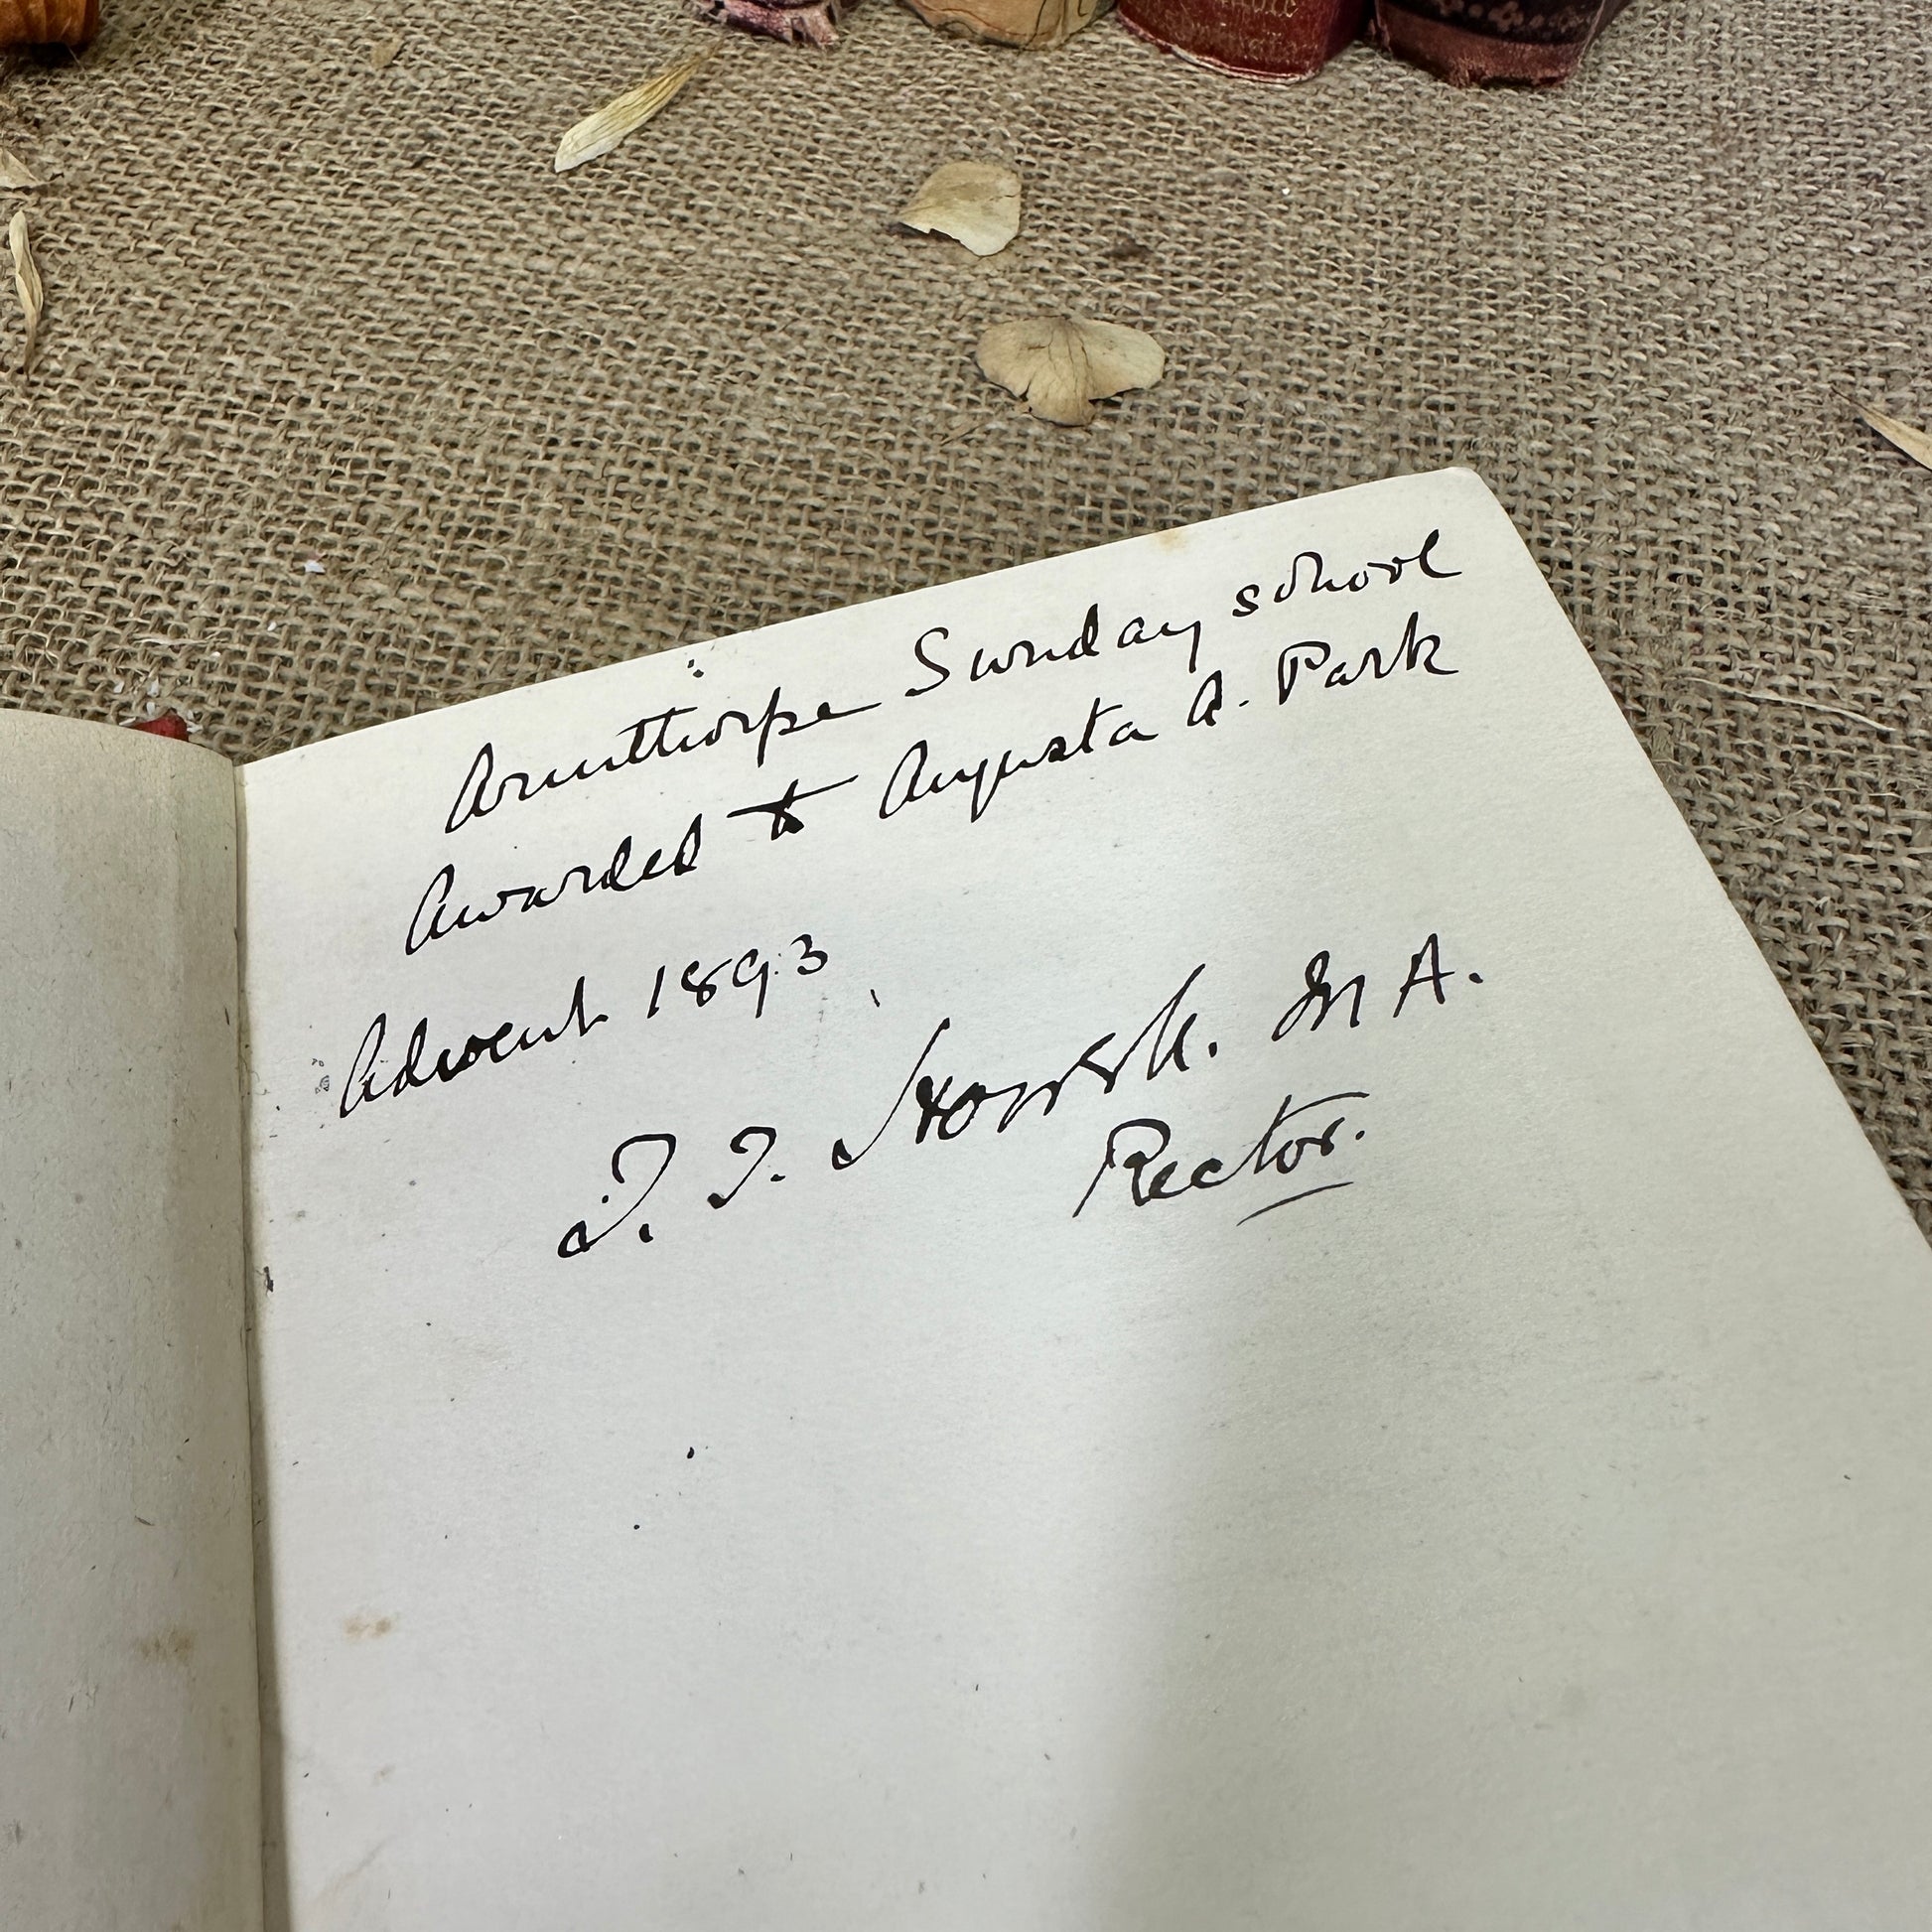 Armthorpe Sunday school
Awarded to Augusta A. Park
Advent 1893
M A.
Rector.